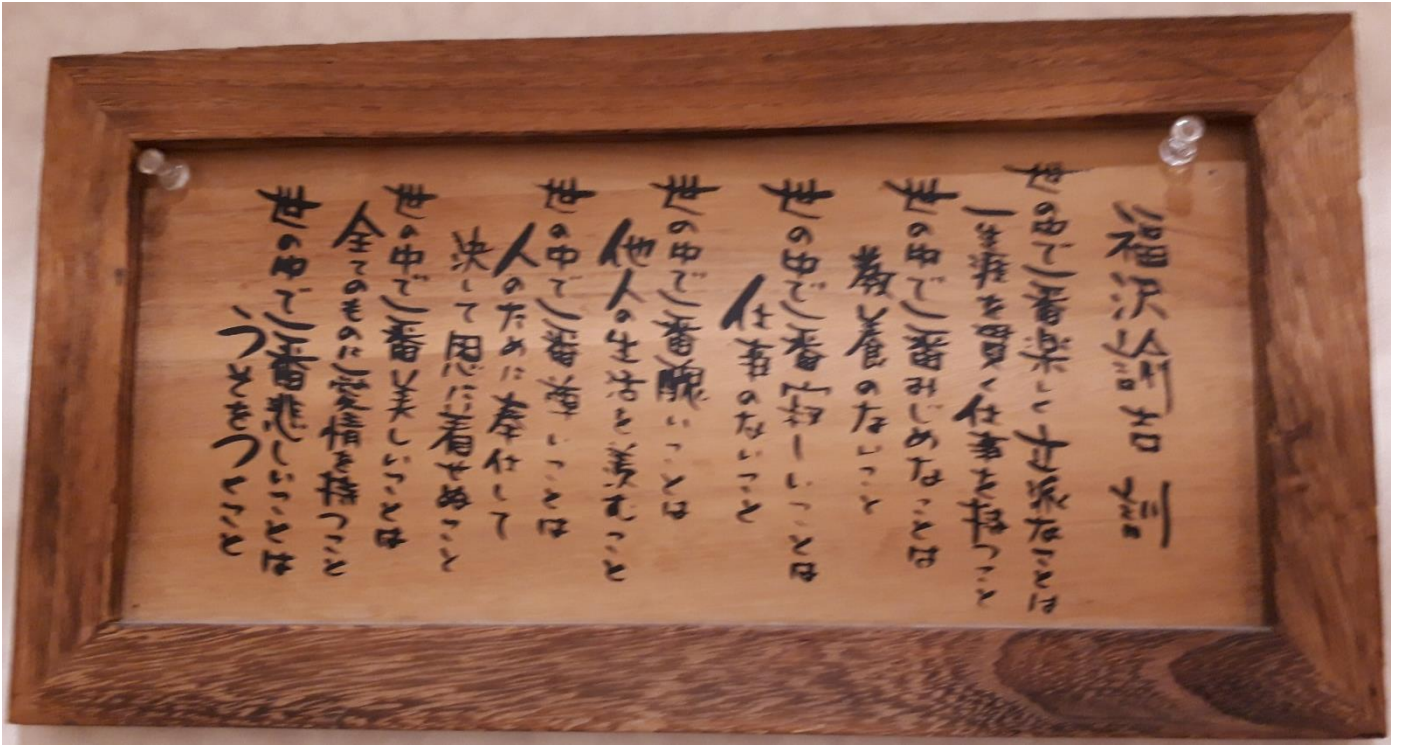 福沢諭吉 訓
世の中で一番楽しく立派なことは
一生涯を貫く仕事を持つこと
世の中で一番みじめなことは
教養のないこと
世の中で一番寂しいことは
仕事のないこと
世の中で一番醜いことは
他人の生活を羨むこと
世の中で一番尊いことは
人のために奉仕して
決して恩に着せぬこと
世の中で一番美しいことは
全てのものに愛情を持つこと
世の中で一番悲しいことは
うそをつくこと